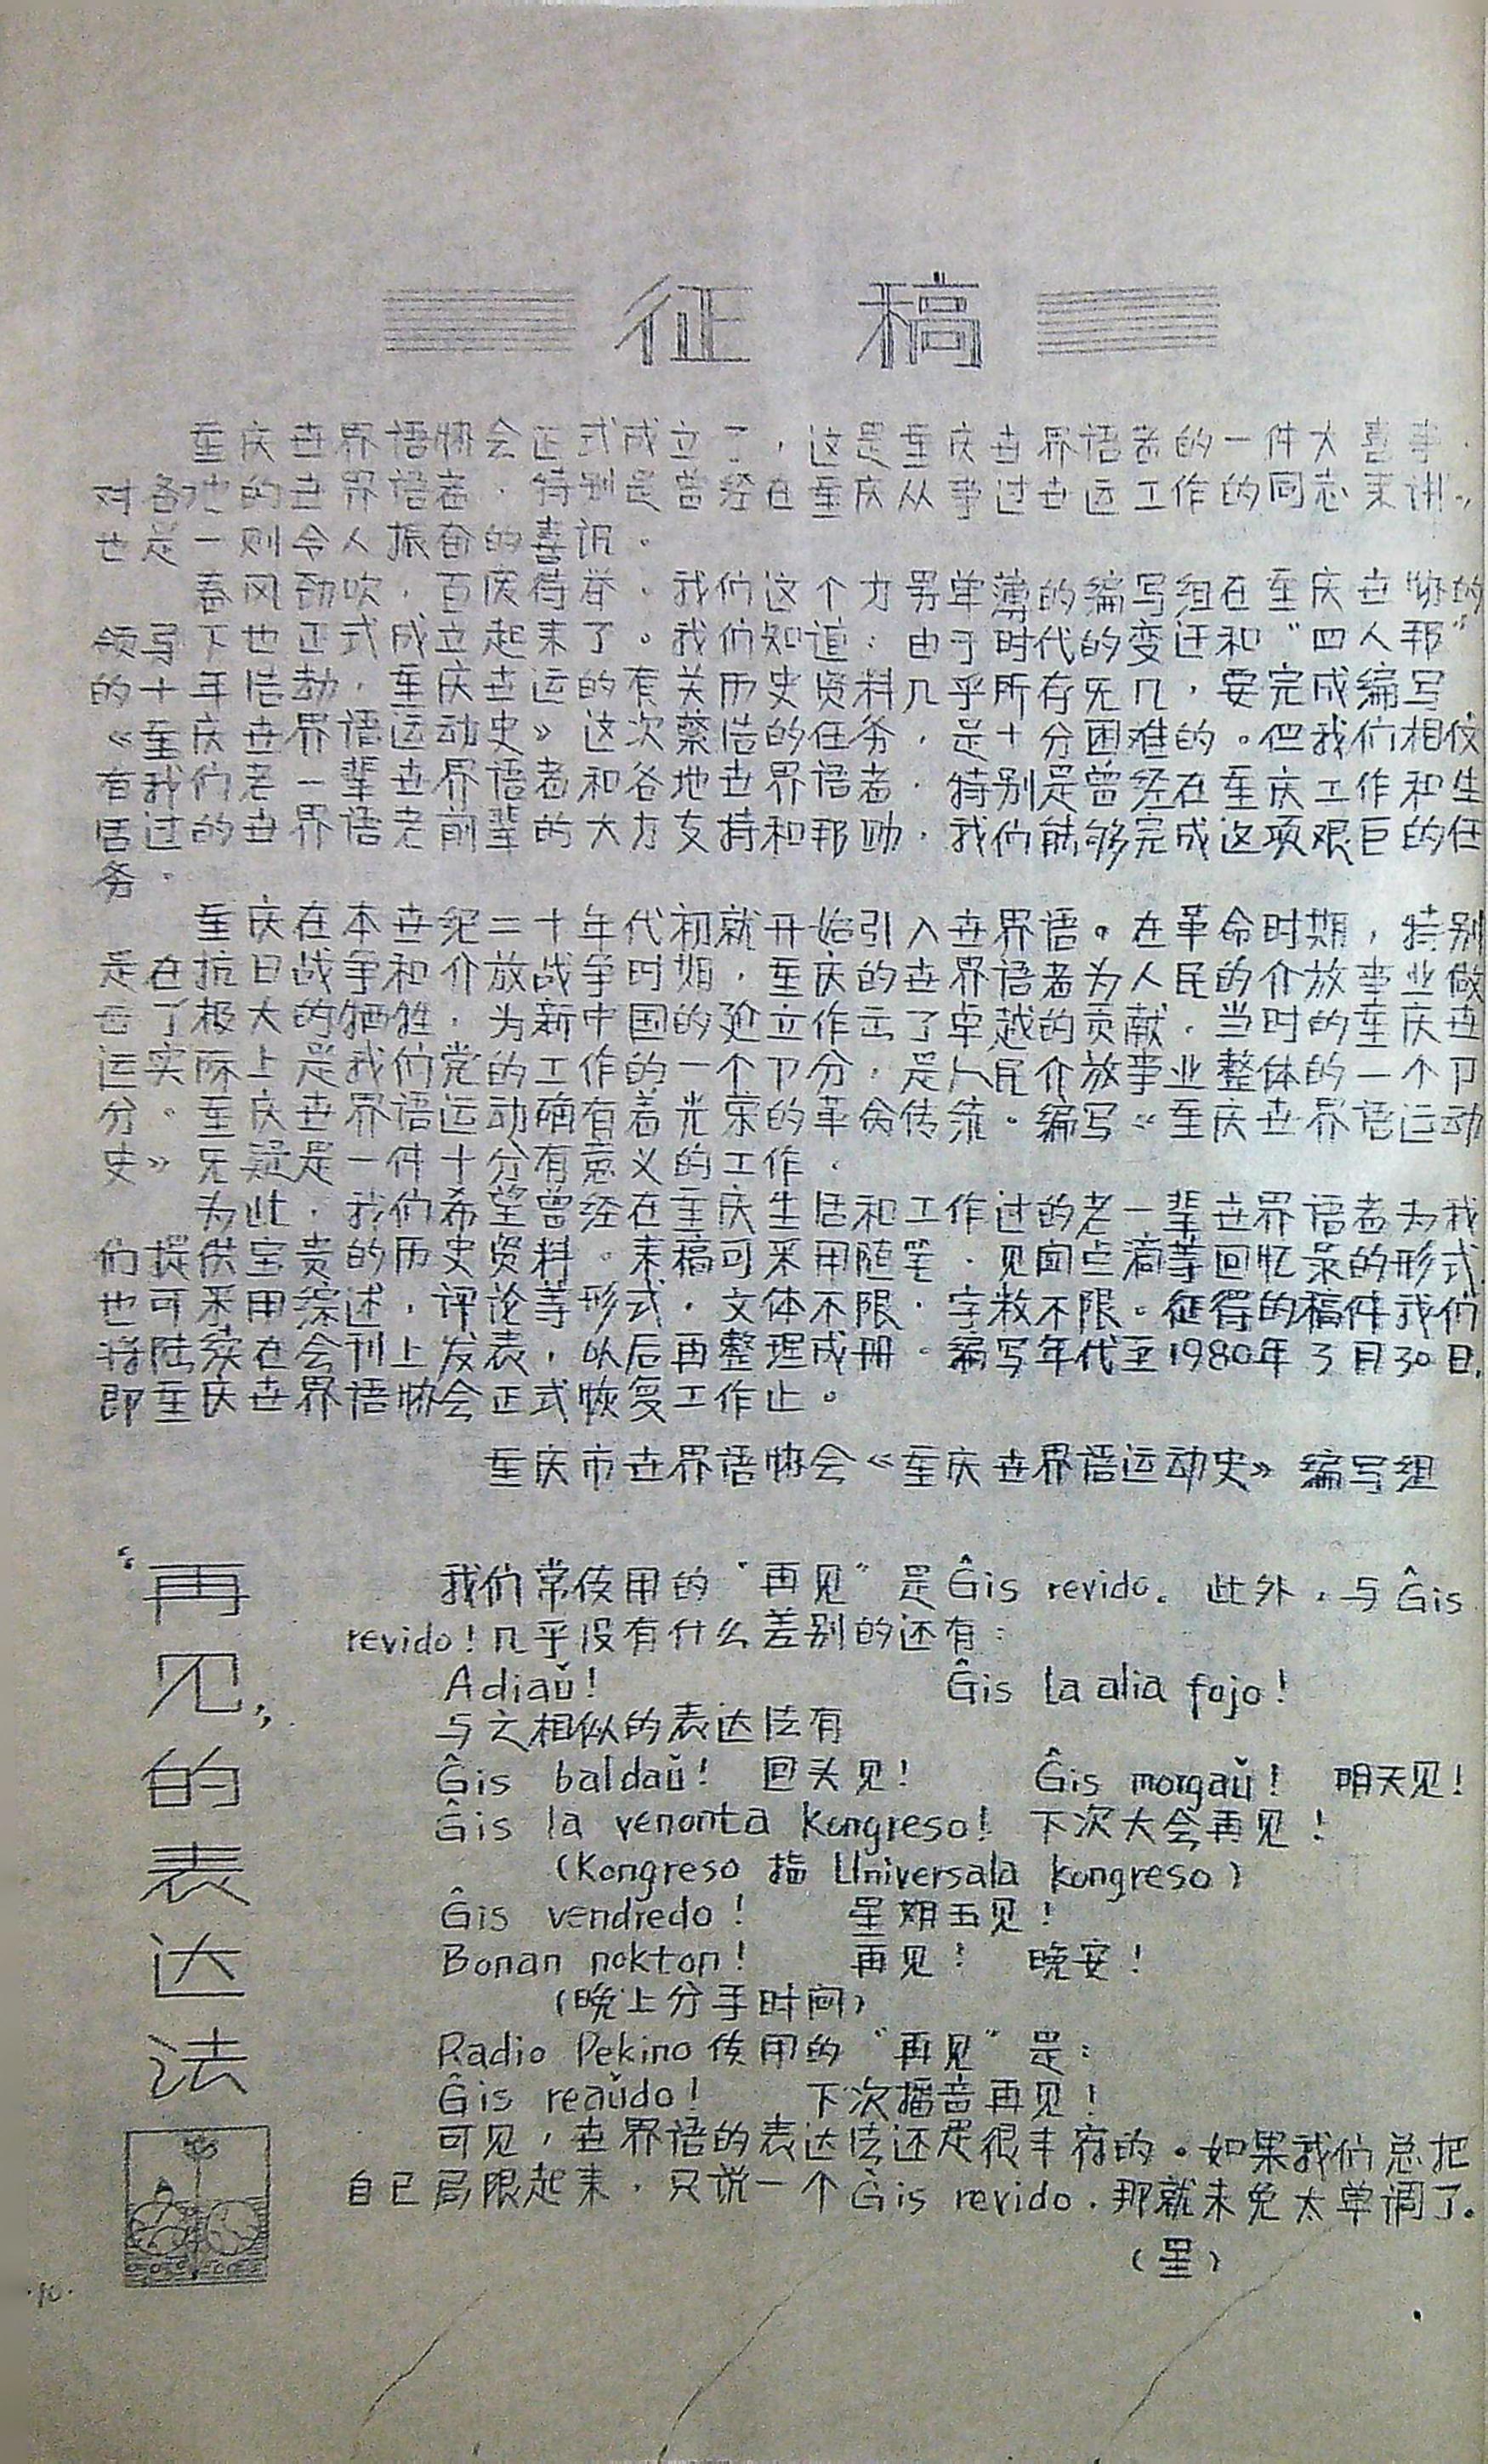 征 稿
重庆世界语协会正式成立了，这是重庆世界语者的一件大喜事，
对各地的世界语者，特别是曾经在重庆从事过世运工作的同志来讲，
也是一则令人振奋的喜讯。
春风劲吹，百废待举。我们这个力男单薄的编写组在重庆世协的
领导下也正式成立起来了。我们知道：由于时代的变迁和“四人邦”
的十年浩劫，重庆世运的有关历史资料几乎所存无几，要完成编写
《重庆世界语运动史》这次繁浩的任务，是十分困难的。但我们相仗
有我们老一辈世界语者和各地世界语者，特别是曾经在重庆工作和生
活过的世界语老前辈的大力支持和邦助，我们能够完成这项艰巨的任
务。
重庆在本世纪二十年代初就开始引入世界语。在革命时期，特别
是在抗日战争和介放战争时期，重庆的世界语者为人民的介放事业做
出了极大的牺牲，为新中国的建立作出了卓越的贡献。当时的重庆世
运实际上是我们党的工作的一个卩分，是人民介放事业整体的一个卩
分。重庆世界语运动确有着光荣的革命传统。编写《重庆世界语运动
史》无疑是一件十分有意义的工作。
为此，我们希望曾经在重庆生活和工作过的老一辈世界语者为我
们提供宝贵的历史资料。来稿可采用随笔、见闻点滴等回忆录的形式
也可采用综述，评论等形式。文体不限，字数不限。征得的稿件我们
将陆续在会刊上发表，以后再整理成册。编写年代至1980年3月30日，
即重庆世界语协会正式恢复工作止。
重庆市世界语协会《重庆世界语运动史》编写组
“再见”的表达法
我们常使用的“再见”是Ĝis revido。此外，与Ĝis
revido！几乎没有什么差别的还有：
Adiaŭ! Ĝis la alia fojo!
与之相似的表达法有
Ĝis baldaŭ! 回头见！ Ĝis morgaŭ! 明天见！
Ĝis la venonta Kongreso! 下次大会再见！
(Kongreso 指 Universala kongreso)
Ĝis vendredo! 星期五见！
Bonan nokton! 再见！ 晚安！
(晚上分手时间)
Radio Pekino 使用的“再见”是：
Ĝis reaŭdo! 下次播音再见！
可见，世界语的表达法还是很丰富的。如果我们总把
自己局限起来，只说一个Ĝis revido，那就未免太单调了。
(星)
·10·